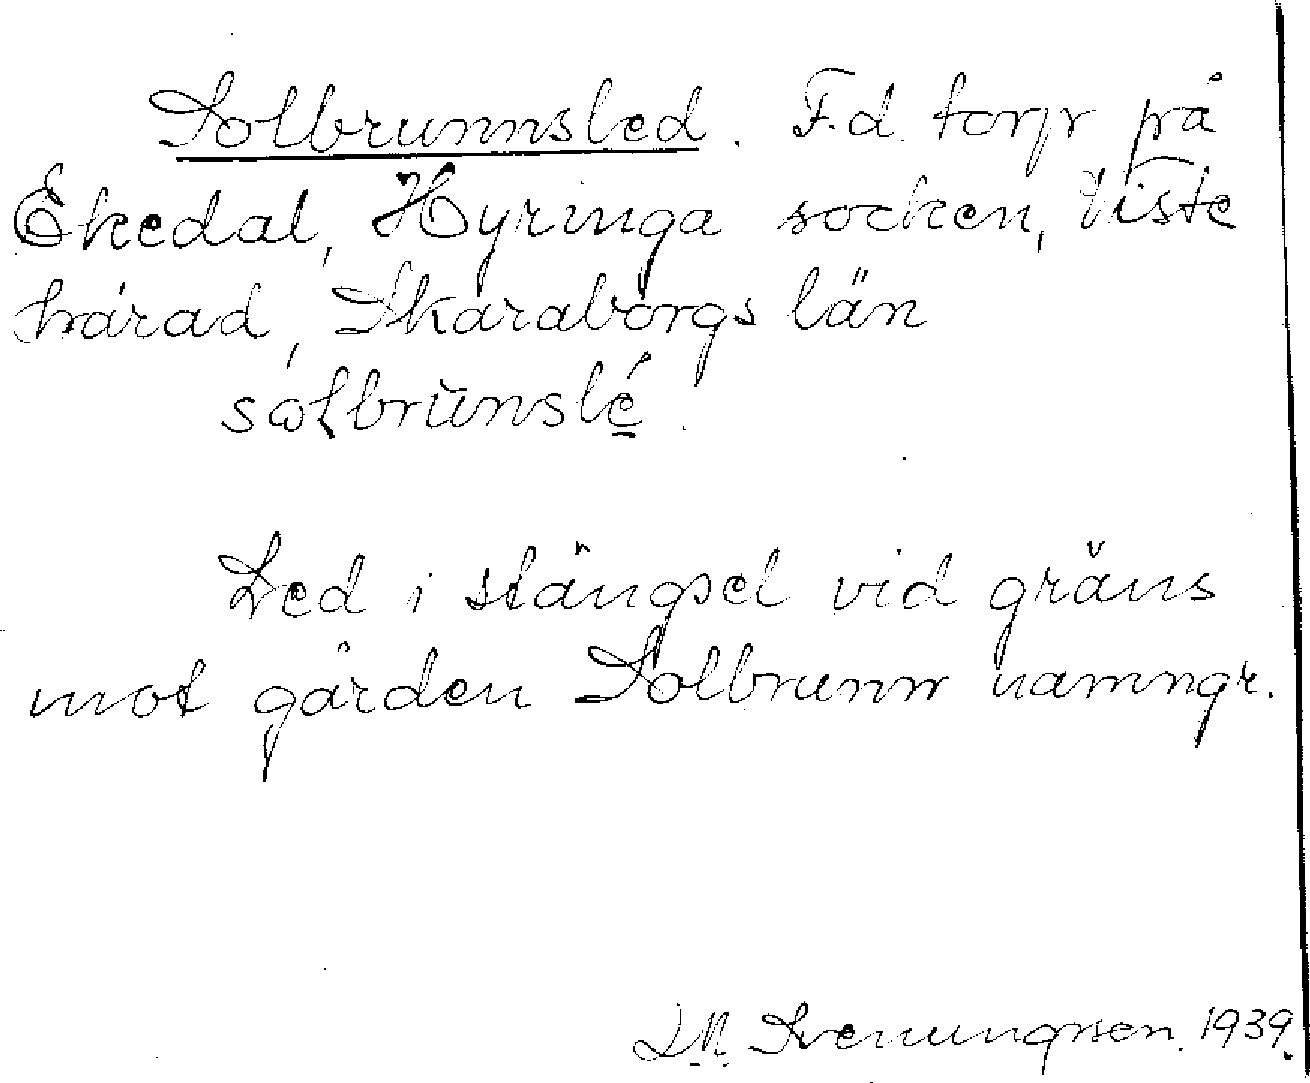 Solbrunnsled. F.d. torp på
Ekedal, Hyringa socken, Viste
härad, Skaraborgs län
sɷlbrunslé.
Led i stängsel vid gräns
mot gården Solbrunn namngr.
Svenungsson. 1939.